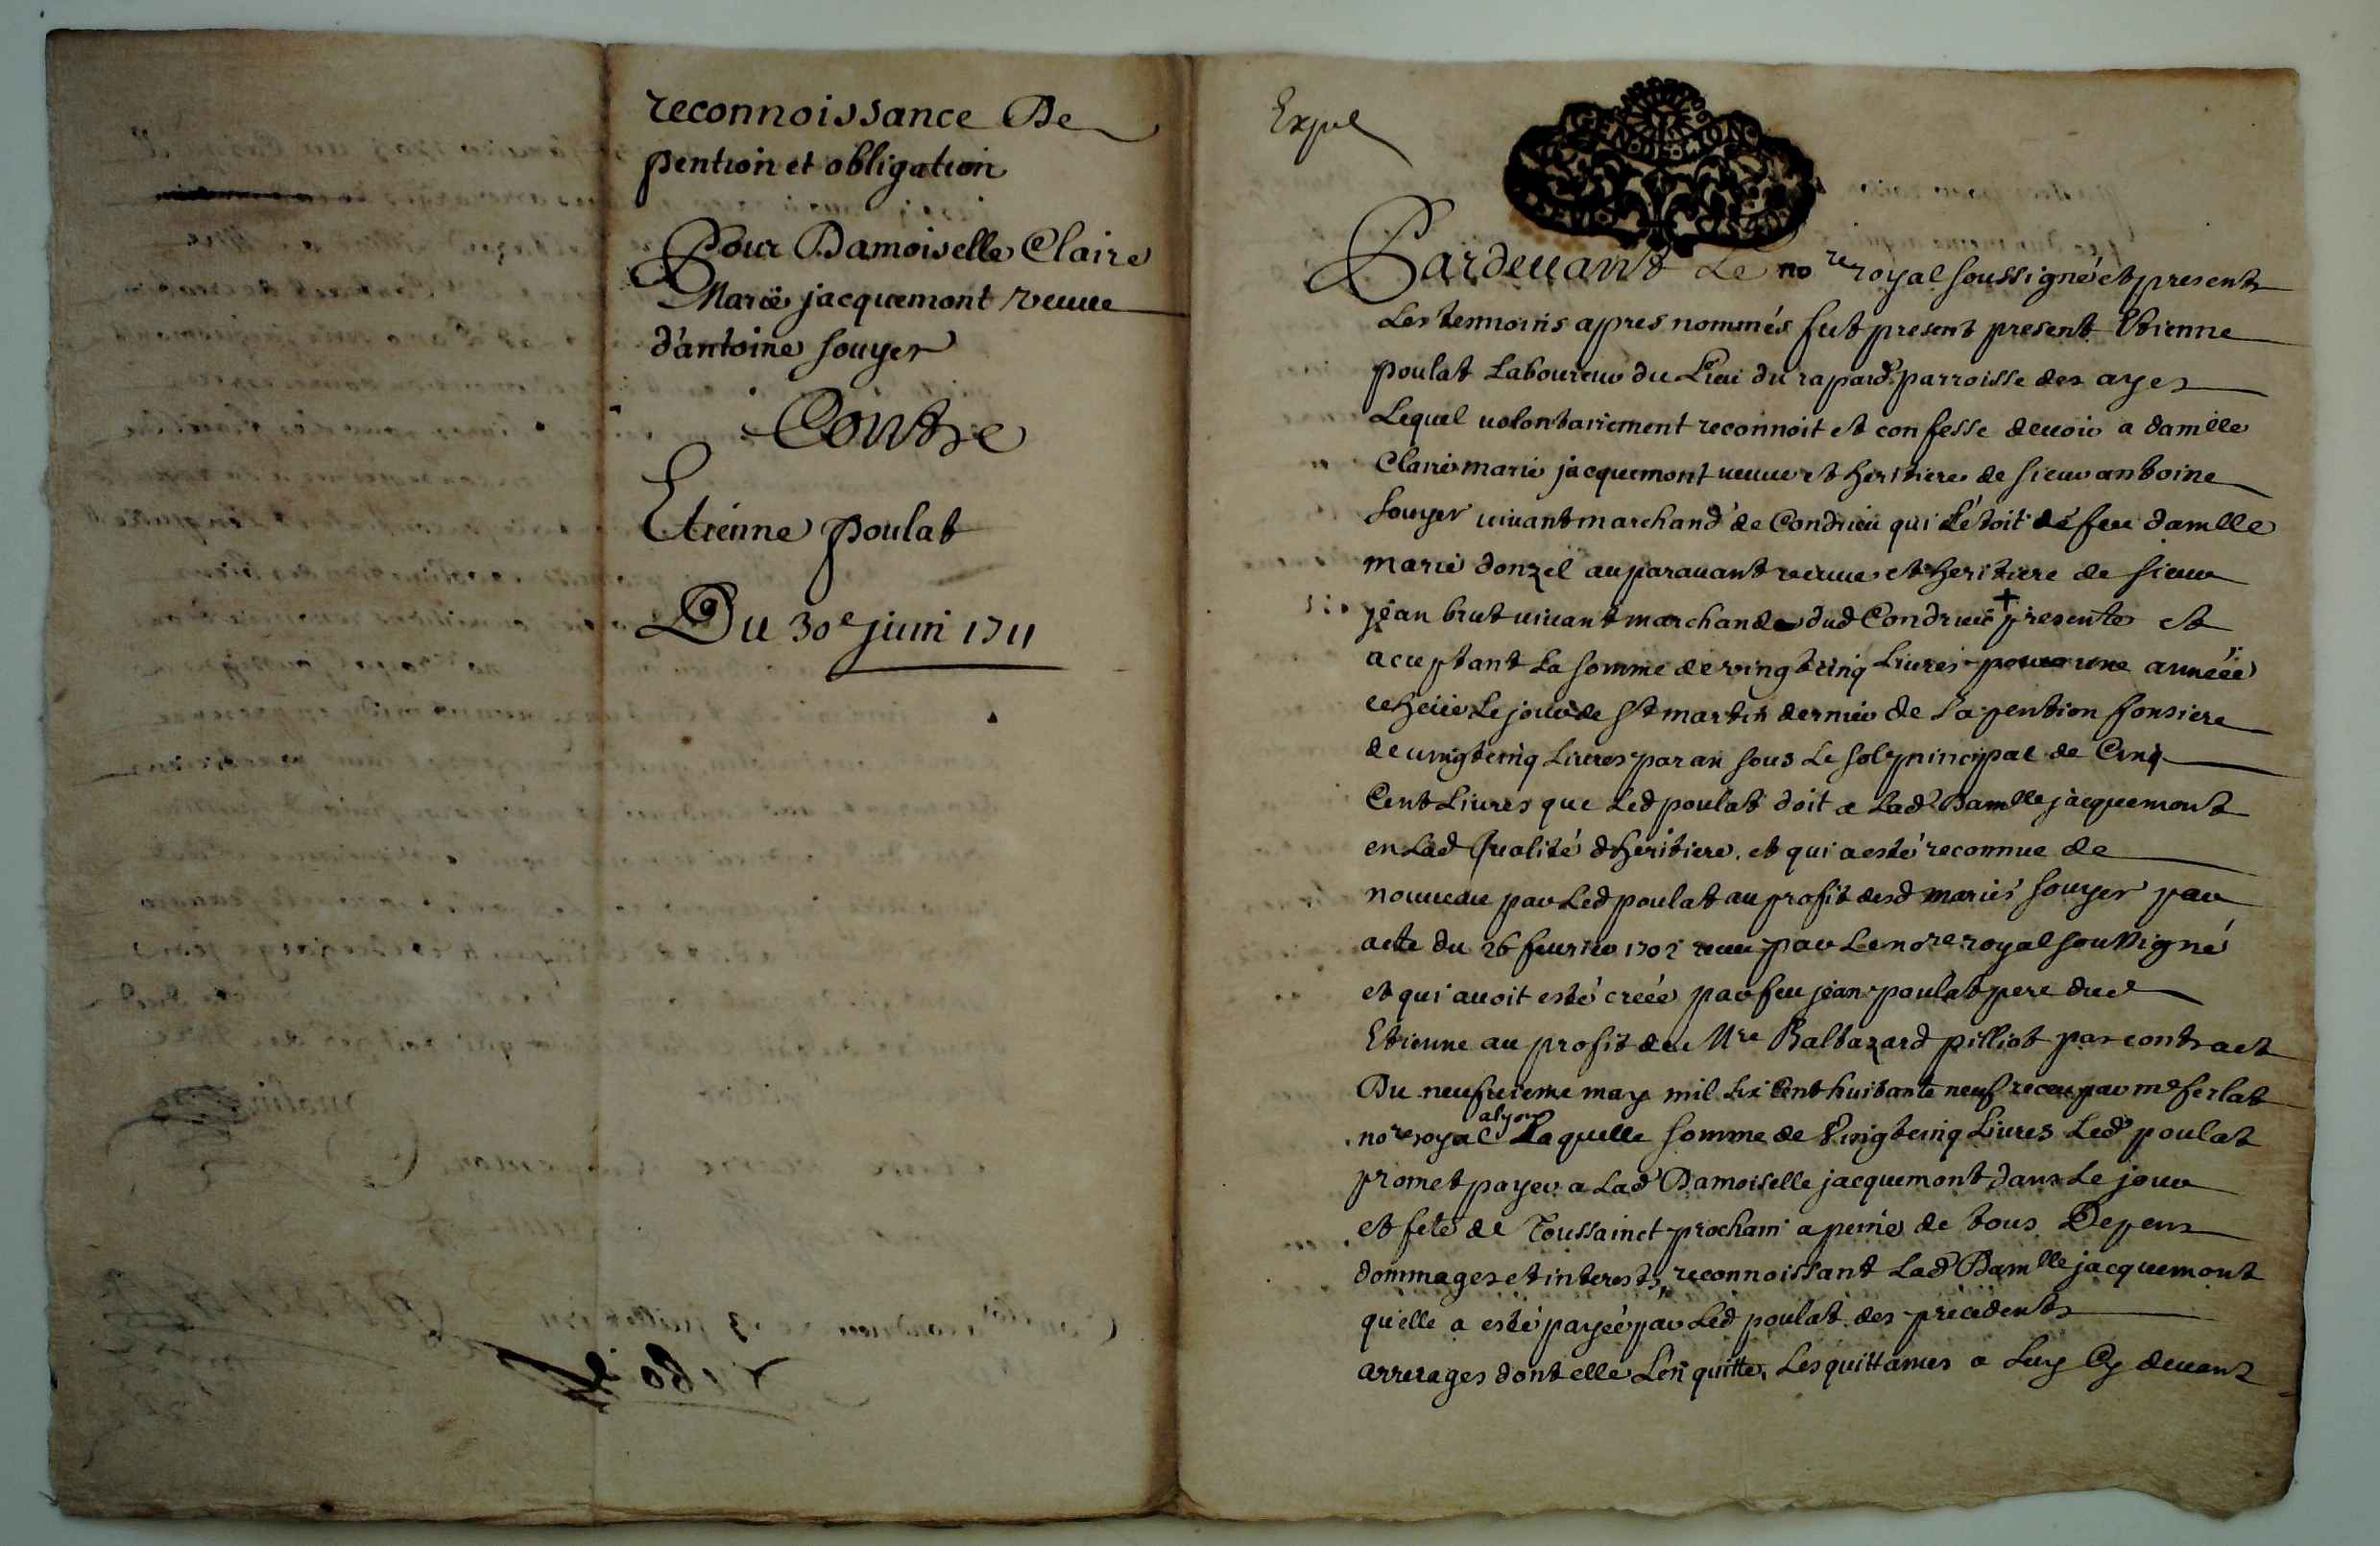 reconnoissance De
pention et obligation
Pour Damoiselle Claire
Marie jacquemont veuue
d'antoine souyer
Contre
Etienne poulat
Du 30e juin 1711
GEN MON
Pardeuant Le nore royal soussigné et presents
Les temoins apres nommés fut present present Etienne
poulat Laboureur du Lieu du rapard parroisse des ayes
Lequel uolontairement reconnoit et confesse deuoir a damlle
Claire marie jacquemont ueuue et heritiere de sieur antoine
souyer uiuant marchand de Condrieu qui L'étoit de feue damlle
marie donzel auparauant veuue et heritiere de sieur
jean brut uiuant marchand dud Condrieu + presente et
aceptant La somme de vingtcinq Liures pour une année
echeüe Le jour de st martin dernier de La pention fonsiere
de uingtcinq Liures par an sous Le sol principal de Cinq
Cent Liures que Led poulat doit a Lad Damlle jacquemont
en Lad qualité d'heritiere. et qui a esté reconnue de
nouueau par Led poulat au profit desd mariés souyer par
acte du 26 feurier 1702 receu par Le nore royal soussigné
et qui auoit esté creée par feu jean poulat pere dud
Etienne au profit de Mre Baltazard pilliot par contract
Du neufuieme may mil six Cent huitante neuf receu par me ferlat
nore royal alyon Laquelle somme de Vingtcinq Liures Led poulat
promet payer a Lad Damoiselle jacquemont dans Le jour
et fete de Toussainct prochain a peine de tous Depens
dommages et interests, reconnoissant Lad Damlle jacquemont
qu'elle a esté payée par Led poulat des precedents
arrerages dont elle L'en quitte, Les quittances a Luy Cy deuant